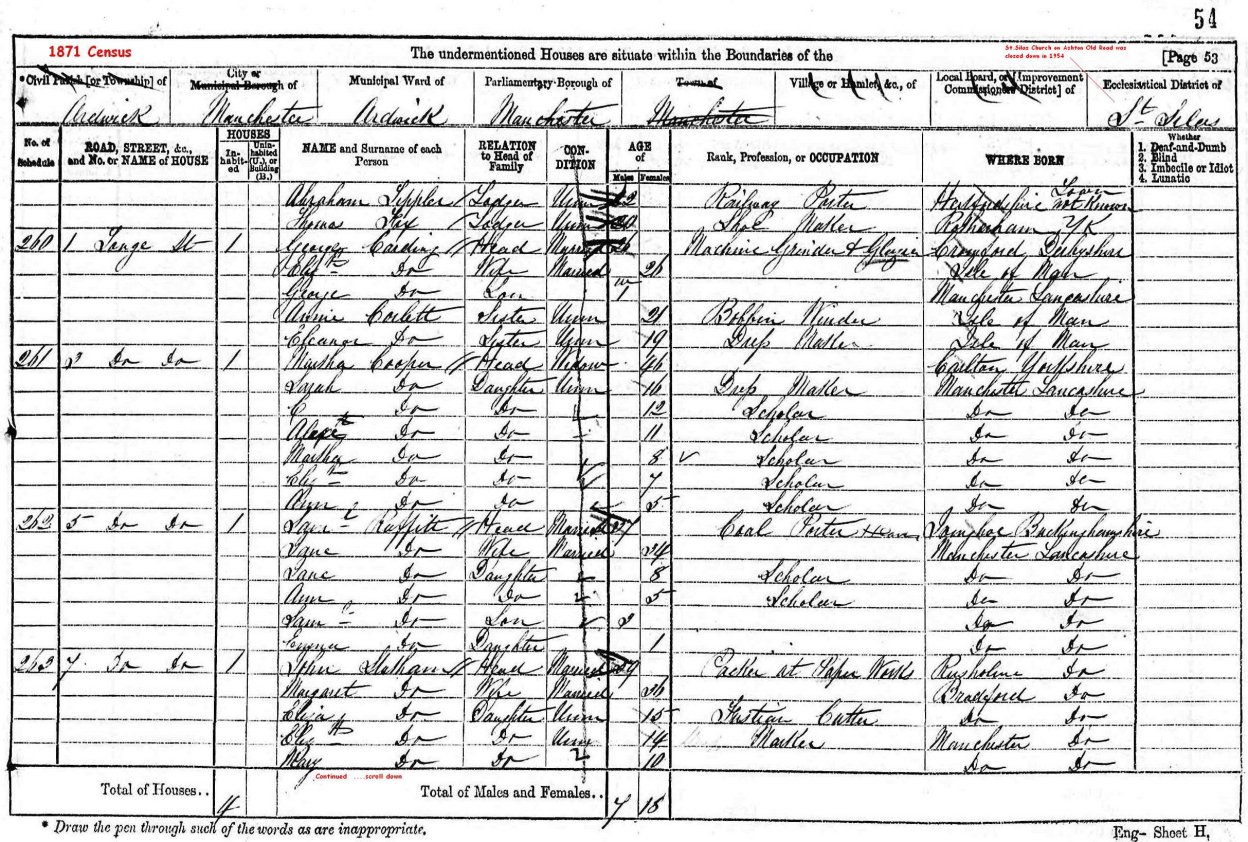 54
1871 Census
The undermentioned Houses are situate within the Boundaries of the
St.Silas Church on Ashton Old Road was closed down in 1954
[Page 53
*Civil Parish [or Township] of
City or Municipal Borough of
Municipal Ward of
Parliamentary Borough of
Town of
Village or Hamlet, &c., of
Local Board, or [Improvement Commissioners District] of
Ecclesiastical District of
Ardwick Manchester Ardwick Manchester Manchester St Silas
No. of Schedule
ROAD, STREET, &c., and No. or NAME of HOUSE
HOUSES
Inhabited
Uninhabited (U.), or Building (B.)
NAME and Surname of each Person
RELATION to Head of Family
CONDITION
AGE of
Males Females
Rank, Profession, or OCCUPATION
WHERE BORN
Whether
1. Deaf-and-Dumb
2. Blind
3. Imbecile or Idiot
4. Lunatic
Abraham Lodger Unm Railway Porter Hertfordshire Town not Known
Lodger Unm Shoe Maker Rotherham Yk
260 1 Tonge St 1 George Carding Head Married 26 Machine Grinder & Glazier Cromford Derbyshire
Elizth Do Wife Married 26 Isle of Man
George Do Son 1 Manchester Lancashire
Annie Corlett Sister Unm 21 Bobbin Winder Isle of Man
Eleanor Do Sister Unm 19 Dress Maker Isle of Man
261 3 Do Do 1 Martha Cooper Head Widow 46 Carlton Yorkshire
Sarah Do Daughter Unm 16 Dress Maker Manchester Lancashire
C Do Do 12 Scholar Do Do
Do Do 11 Scholar Do Do
Martha Do Do 8 Scholar Do Do
Elizth Do Do 7 Scholar Do Do
Ann Do Do 5 Scholar Do Do
262 5 Do Do 1 Saml Head Married 27 Coal Porter Ivinghoe Buckinghamshire
Jane Do Wife Married 24 Manchester Lancashire
Jane Do Daughter 8 Scholar Do Do
Ann Do Do 5 Scholar Do Do
Saml Do Son 2 Do Do
Emma Do Daughter 1 Do Do
263 7 Do Do 1 John Statham Head Married 39 Packer at Paper Works Rusholme Do
Margaret Do Wife Married 36 Bradford Do
Eliza Do Daughter Unm 15 Fustian Cutter Do Do
Elizth Do Do Unm 14 Maker Manchester Do
Mary Do Do 10 Do Do
Continued ....scroll down
Total of Houses.. 4 Total of Males and Females.. 7 18
* Draw the pen through such of the words as are inappropriate.
Eng- Sheet H,